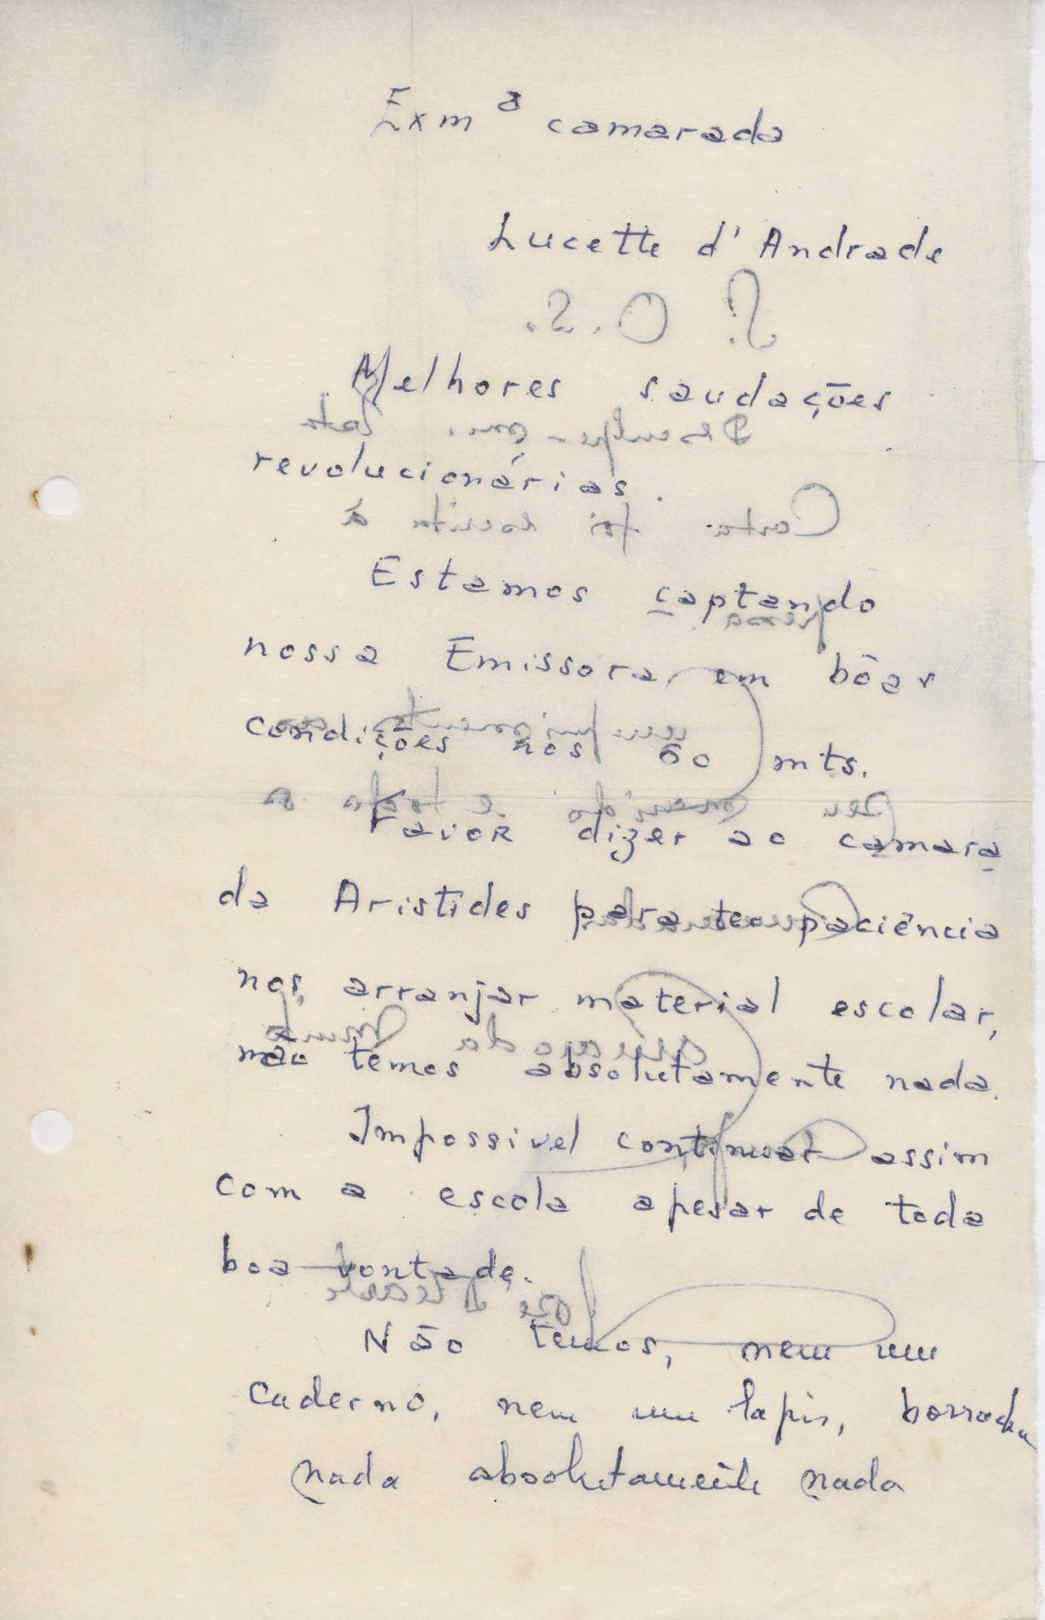 Exmª camarada
Lucette d'Andrade
Melhores saudações
revolucionárias.
Estamos captando
nossa Emissora em bôas
condições nos 60 mts.
Favor dizer ao camara
da Aristides para ter paciência
nos arranjar material escolar,
não temos absolutamente nada.
Impossivel continuar assim
com a escola apesar de toda
boa vontade.
Não temos, nem um
caderno, nem um lapis, borracha
nada absolutamente nada